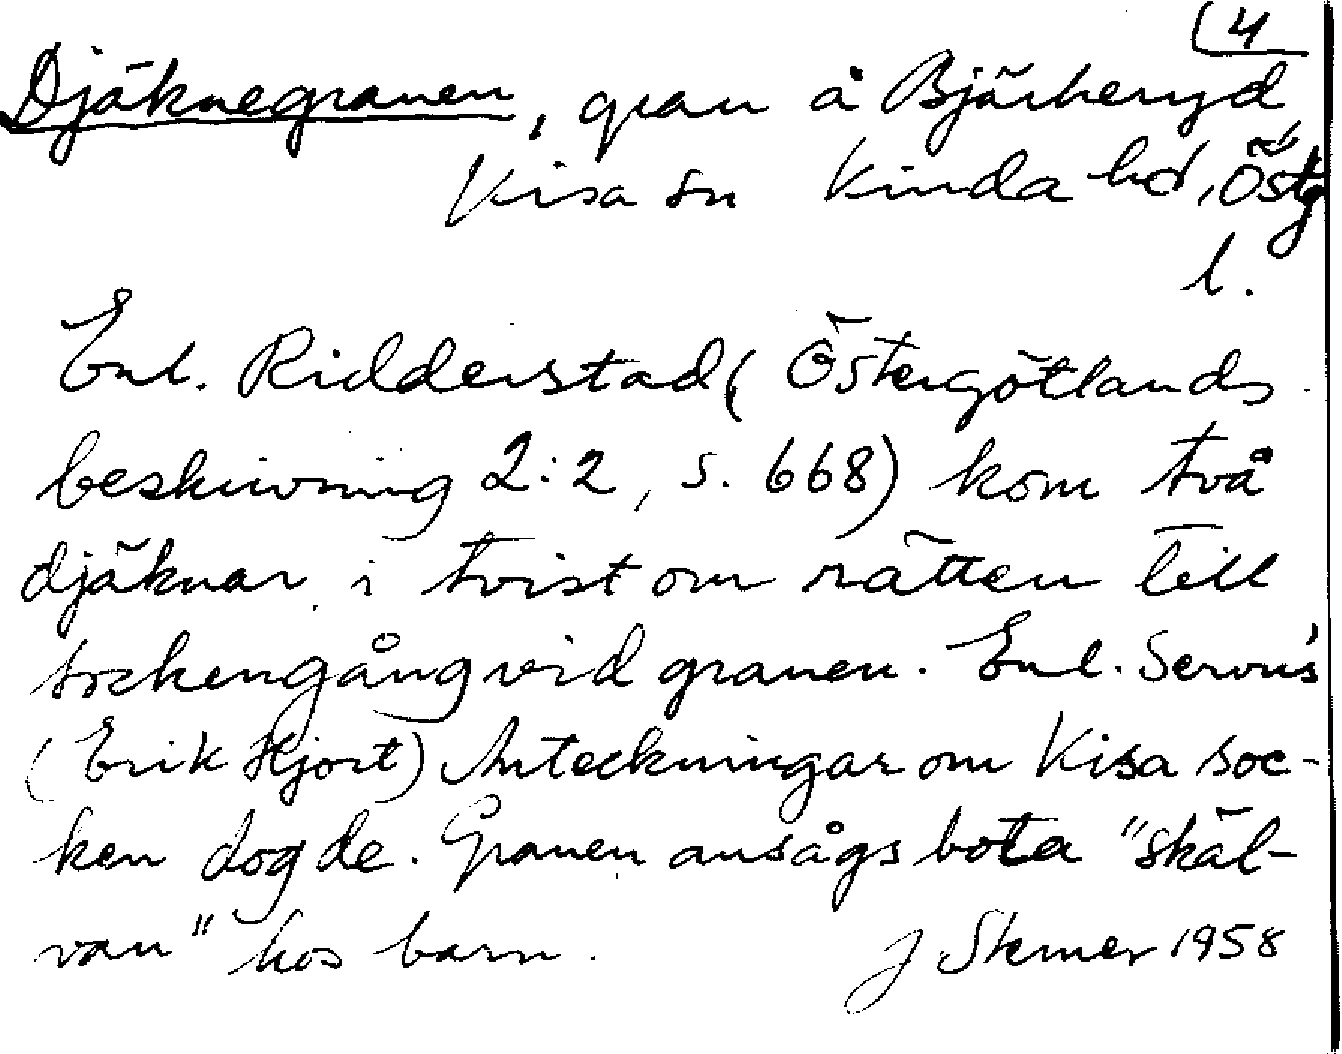 (4
Djäknegranen, gran å Bjärkeryd
Kisa sn Kinda hd, Östg
l.
Enl. Ridderstad (Östergötlands
beskrivning 2:2, s. 668) kom två
djäknar i tvist om rätten till
sockengång vid granen. Enl.
(Erik Hjort) Anteckningar om Kisa soc-
ken dog de. Granen ansågs bota "skäl-
van" hos barn. J Stemer 1958